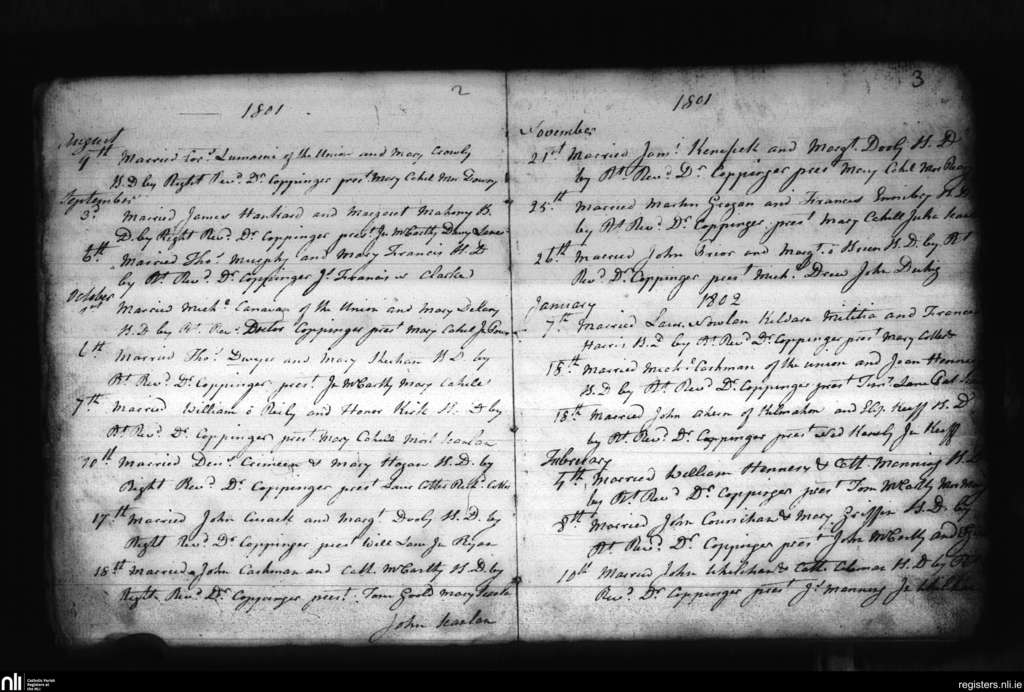 2
1801
August
9th Married Tos. Lumasni of the Union and Mary Crowly
H.D by Right Revd. Dr. Coppinger prest. Mary Cahel Mor Downy
September
3d. Married James Hankard and Margaret Mahony H.
D. by Right Revd. Dr. Coppinger prest. Jn McCartthy
6th Married Thos. Murphy and Mary Francis H.D
by Rt. Revd. Dr. Coppinger Js. Francis & Clarke
October
Married Michl. Canavan of the Union and Mary Delany
H.D by Rt. Revd. Doctor Coppinger prest. Mary Cahel Jn
6th Married Thos. Dwyer and Mary Sheehan H.D. by
Rt. Revd. Dr. Coppinger prest. Jn McCartly Mary Cahill
7th Married William ō Reily and Honor Kirk H. D by
Rt. Revd. Dr. Coppinger prest. Mary Cahill Mors. Scanlan
10th Married Denis. Crimeen & Mary Hogan H.D. by
Right Revd. Dr. Coppinger prest. Laur Cotter Cotter
17th Married John Cusack and Margt. Dooly H.D. by
Right Revd. Dr. Coppinger prest. Will Law Jn Ryan
18th Married John Cashman and Cath. McCartly H.D. by
Right Revd. Dr. Coppinger prest. Tom Goold Mary
John Scanlan
3
1801
November
21st Married Jams. Kenefick and Margt. Dooly H.D
by Rt. Revd. Dr. Coppinger prest. Mary Cahel Mor
25th Married Martin Grogan and Francis H.D
by Rt Revd. Dr. Coppinger prest. Mary Cahill Julia
26th Married John Prior and Margt. ō Brien H.D. by Rt
Revd. Dr. Coppinger prest. Michl. Drew John Duhig
January 1802
7th Married Laur. Nowlan Kildare Militia and
Harris H.D by Rt. Revd Dr. Coppinger prest. Mary Cotter
15th Married Michl. Cashman of the union and Joan
H.D by Rt Revd. Dr. Coppinger prest. Timy. Lane Pat
18th Married John Ahern of Kilmahon and Eliz Keeff H.D
by Rt. Revd. Dr. Coppinger prest. Ned Jn Keeff
February
4th Married William Hennery & Cath. Manning H.D
by Rt. Revd. Dr. Coppinger prest. Tom McCartly
8th Married John Courihan & Mary Griffin H.D. by
Rt Revd. Dr. Coppinger prest. John McCartly and
10th Married John Whelehan & Cath Colemac H.D by Rt
Revd. Dr. Coppinger prest. Js. Manning Jn
nli
Catholic Parish
Registers at
the NLI
registers.nli.ie